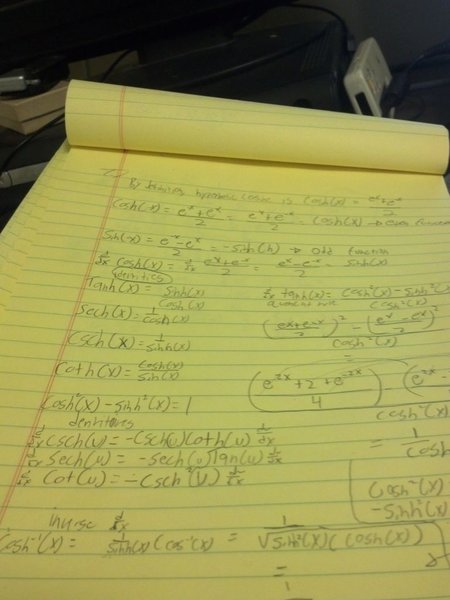 By hyperbolic cosine is cosh(x) = (e^x + e^-x)/2
cosh(-x) = (e^-x + e^x)/2 = (e^x + e^-x)/2 = cosh(x) → even function
sinh(-x) = (e^-x - e^x)/2 = -sinh(h) → odd function
d/dx cosh(x) = d/dx (e^x + e^-x)/2 = (e^x - e^-x)/2 = sinh(x)
identities
tanh(x) = sinh(x)/cosh(x)
d/dx tanh(x) = (cosh²(x) - sinh²(x))/cosh²(x)
quotient rule
sech(x) = 1/cosh(x)
((e^x + e^-x)/2)² - ((e^x - e^-x)/2)²
cosh²(x)
csch(x) = 1/sinh(x)
=
coth(x) = cosh(x)/sinh(x)
((e^2x + 2 + e^-2x)/4) (e^2x -
cosh²(x)
cosh²(x) - sinh²(x) = 1
derivatives
d/dx csch(u) = -csch(u)coth(u) d/dx
= 1/cosh
d/dx sech(u) = -sech(u)tan(u) d/dx
d/dx cot(u) = -csch²(u) d/dx
cosh²(x)
-sinh²(x)
inverse d/dx
cosh⁻¹(x) = 1/sinh(x) (cos⁻¹(x) = 1/√sinh²(x)(cosh(x))
=
1